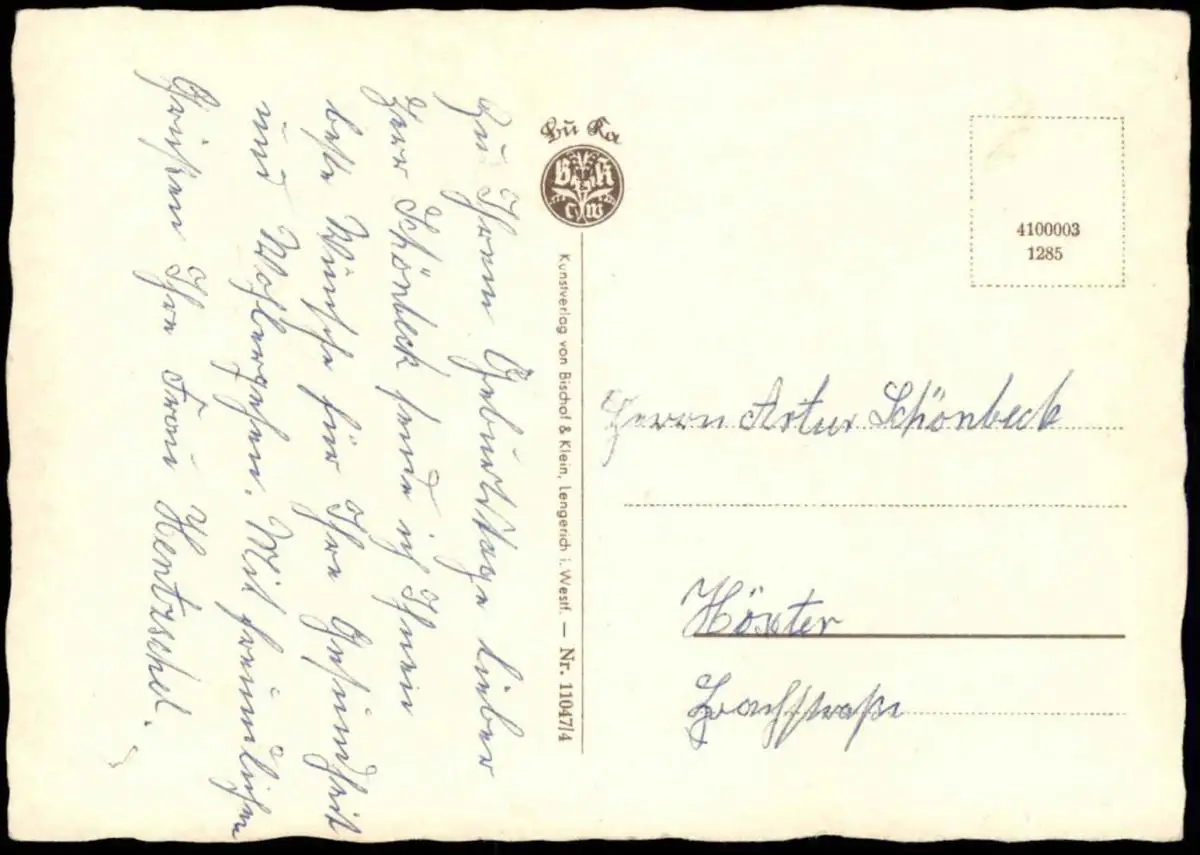 Zu Ihrem Geburtstage lieber
Herr Schönbeck sende ich Ihnen
beste Wünsche für Ihre Gesundheit
und Wohlergehen. Mit freundlichen
Grüßen Ihre Frau Hentzschel.
Bü Ka
B K
C W
Kunstverlag von Bischof & Klein, Lengerich i. Westf. — Nr. 11047/4
4100003
1285
Herrn Artur Schönbeck
Höxter